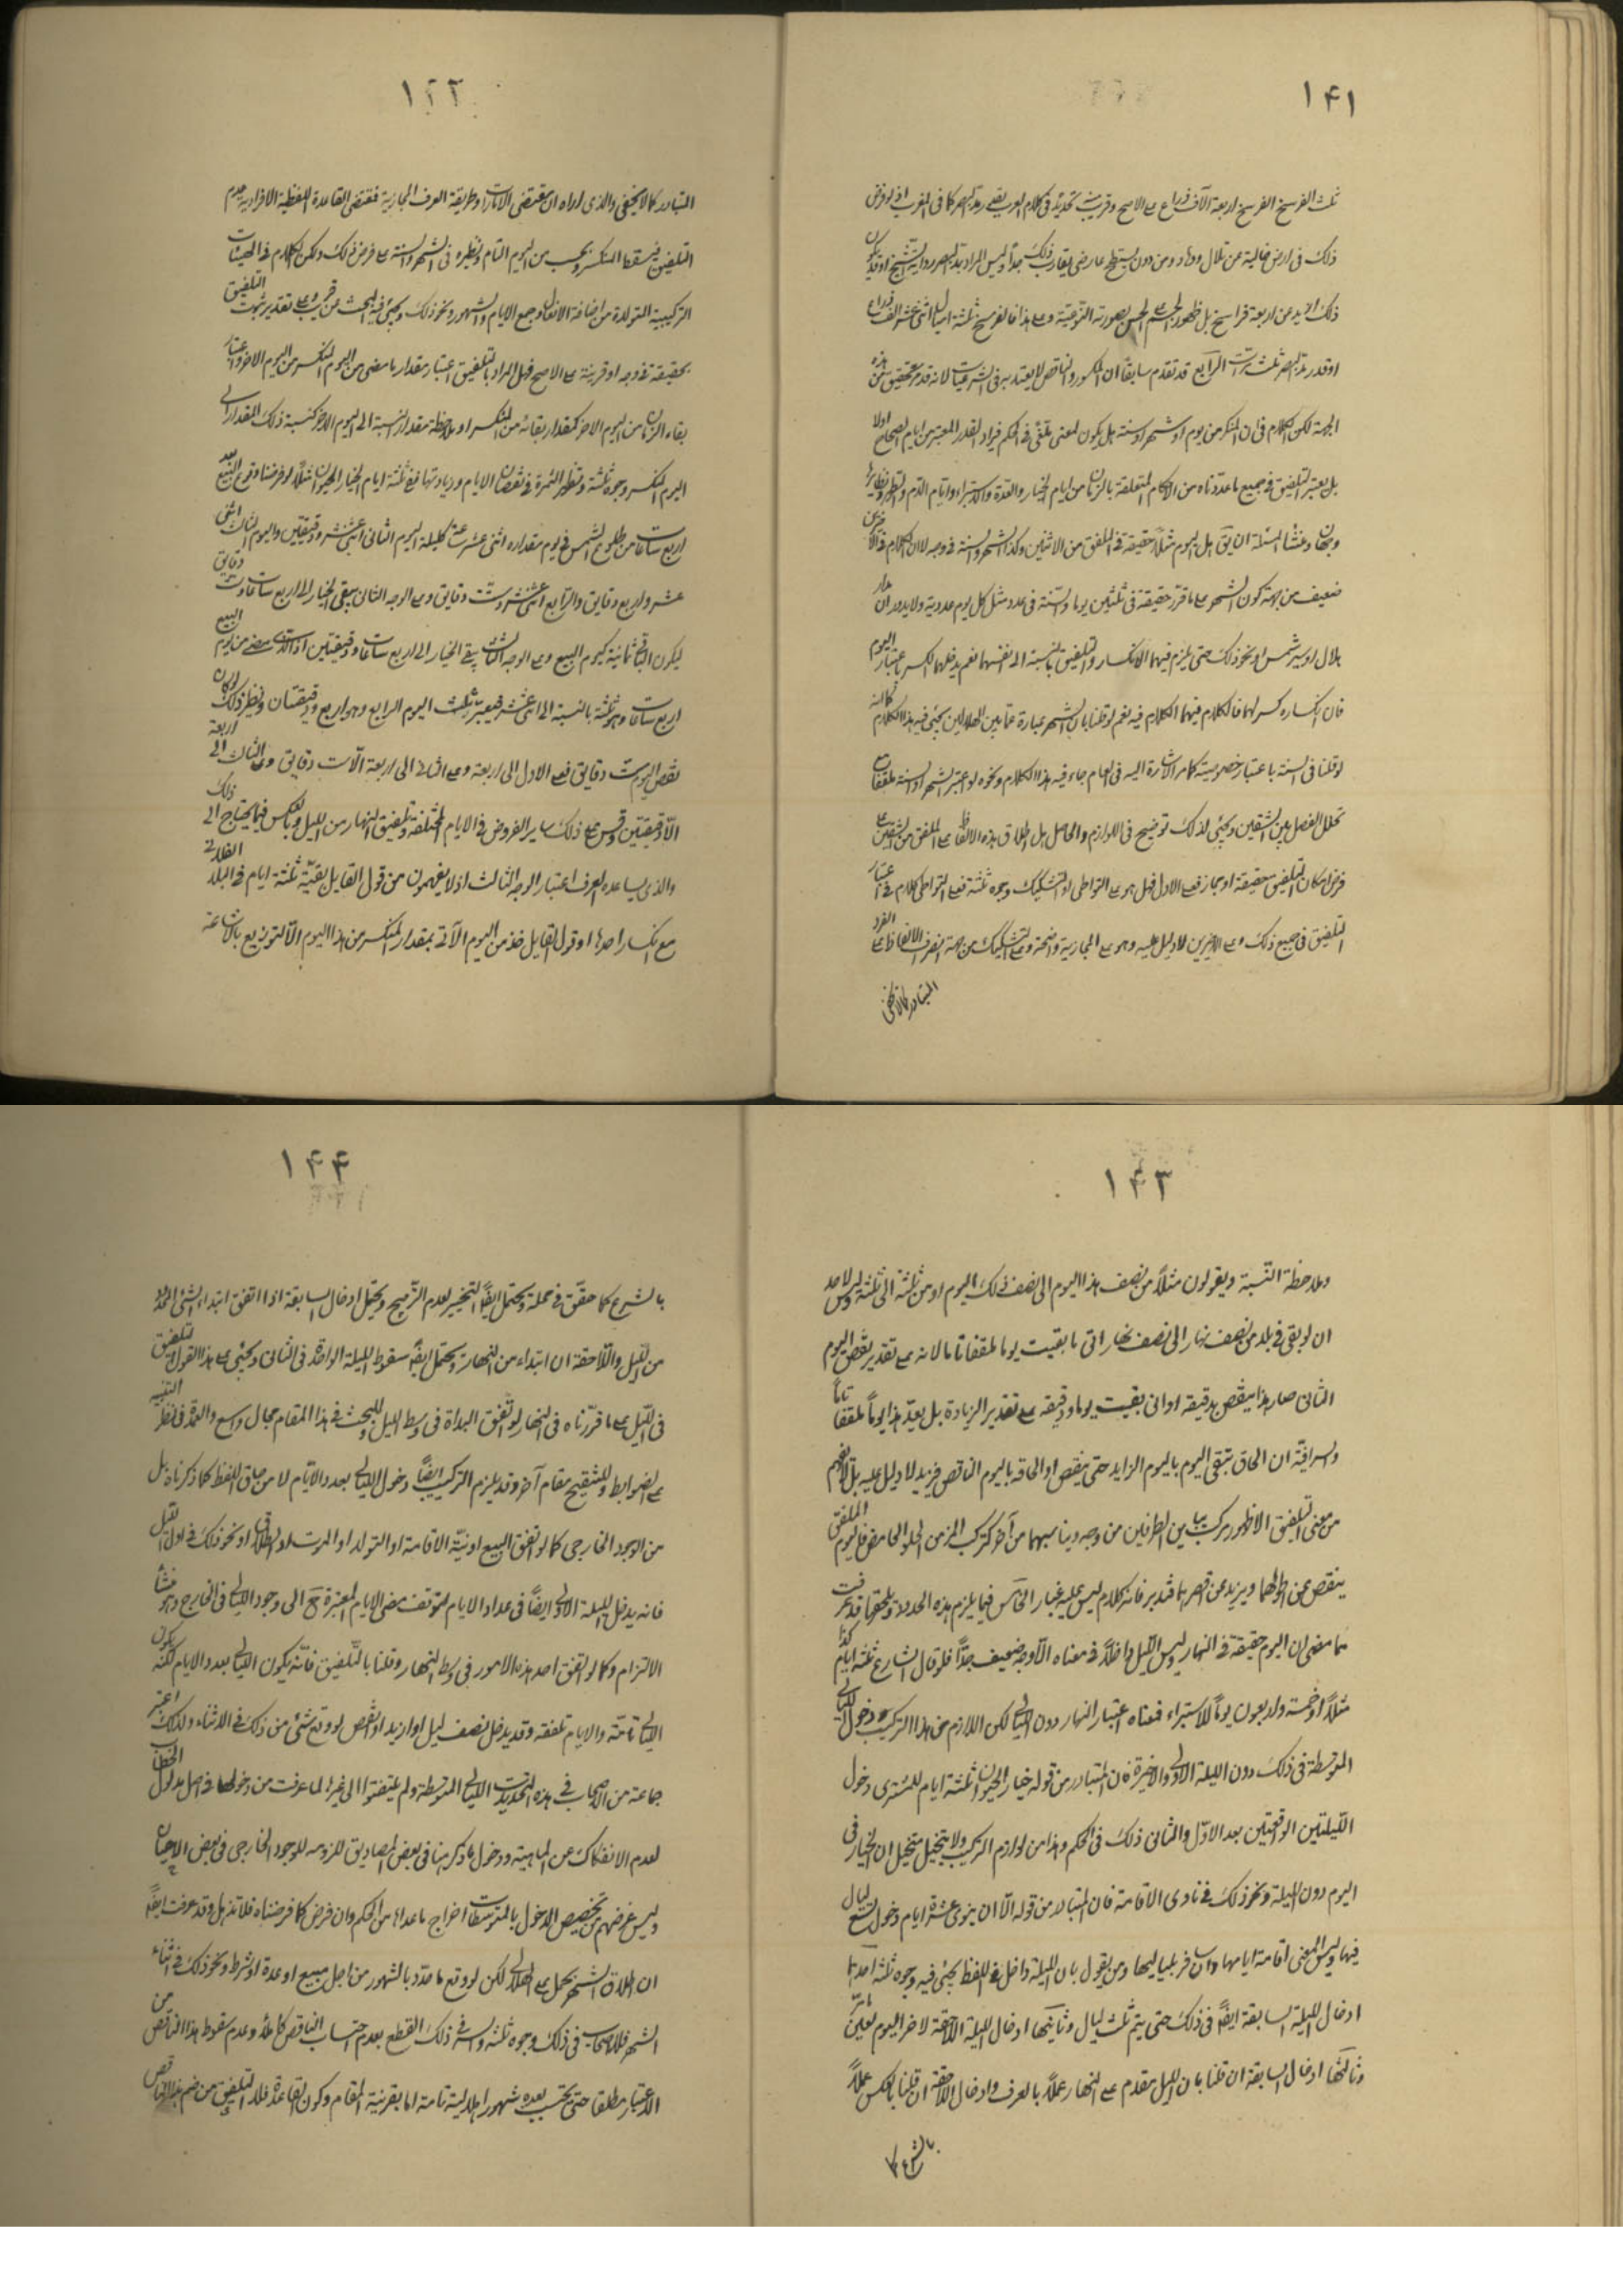 ١٤١
ثلث الفرسخ الفرسخ اربعة آلاف ذراع على الاصح وقريب تحديد في كلام العرب بقدر مد البصر كما في المغرب اذ لو فرض
ذلك في ارض خالية من تلال ووهاد ومن دون عارض يقارب ذلك جدا وليس المراد مد البصر رواية الشيخ اذ قد يكون
ذلك ازيد من اربعة فراسخ بل ظهور الجسم الحس بصورته النوعية وعلى هذا فالفرسخ ثلثة اميال اثنى عشر الف ذراع
او قدر مد البصر ثلث مرات الرابع قد تقدم سابقا ان المكسور والناقص لا يعتد به في الشرعيات لانه قد مر تحقيق من هذه
الجهة لكن الكلام في ان المنكسر من يوم او شهر او سنة هل يكون لمعنى ملغى في الحكم فيراد القدر المعتبر من ايام الصحاح اولا
بل يعتبر التلفيق في جميع ما عددناه من الاحكام المتعلقة بالزمان من ايام الخيار والعدة والاستبراء وايام الدم والطهر ونظايرها
وجهان ومنشأ المسئلة ان يق هل اليوم مثلا حقيقة في الملفق من الاثنين وكذا الشهر والسنة في وجه لا ان الكلام في الاخيرين
ضعيف من جهة كون الشهر على ما قرر حقيقة في ثلثين يوما والسنة في عدد مثل كل يوم عددية ولا يدور ان مدار
هلال او سير شمس او نحو ذلك حتى يلزم فيهما الانكسار والتلفيق بالنسبة الى انفسهما نعم يدخلهما الكسر باعتبار اليوم
فان انكساره كسر لهما فالكلام فيهما الكلام فيه نعم لو قلنا بان الشهر عبارة عما بين الهلالين يجئ فيه هذا الكلام كما انه
لو قلنا في السنة باعتبار خصوصيته كما مر الاشارة اليه في العام جاء فيه هذا الكلام ونحوه لو اعتبر الشهر او السنة ملفقا مع
تخلل الفصل بين الشقين ويجئ لذلك توضيح في اللوازم والحاصل هل اطلاق هذه الالفاظ على الملفق من الشقين على
فرض امكان التلفيق حقيقة او مجاز فعلى الاول فهل هو على التواطى او التشكيك وجوه ثلثة فعلى التواطى كلام في اعتبار
التلفيق في جميع ذلك وعلى الاخيرين لا دليل عليه وهو على المجازية واضحة وعلى التشكيك من جهة انصراف الالفاظ على الفرد
المتبادر كما لا يخفى
١٤٢
المتبادر كما لا يخفى والذي اراه ان مقتضى الامارات وطريقة العرف المجازية فمقتضى القاعدة اللفظية الافرادية عدم
التلفيق فيسقط المنكسر ويحسب من اليوم التام ونظيره في الشهر والسنة على فرض ذلك ولكن الكلام في الهيئات
التركيبية المتولدة من اضافة الافعال وجمع الايام والشهور ونحو ذلك ويجئ فيه البحث من قريب وعلى تقدير ثبوت التلفيق
بحقيقته في وجه او قرينة على الاصح فهل المراد بالتلفيق اعتبار مقدار ما مضى من اليوم المنكسر من اليوم الاخر او اعتبار
بقاء الزمان من اليوم الاخر كمقدار بقائه من المنكسر او ملاحظة مقدار النسبة الى اليوم الاخر كنسبة ذلك المقدار الى
اليوم المنكسر وجوه ثلثة وتظهر الثمرة في نقصان الايام وزيادتها ففي ثلثة ايام الخيار الحيوان مثلا لو فرضنا وقوع البيع بعد
اربع ساعات من طلوع الشمس في يوم مقداره اثنى عشر ساعة كليلة اليوم الثاني اثنى عشر ودقيقتين واليوم الثالث اثنى
عشر واربع دقايق والرابع اثنى عشر وست دقايق وعلى الوجه الثاني يبقى الخيار الى اربع ساعات وست دقايق
ليكون الباقي ثمانية كيوم البيع وعلى الوجه الثالث يبقى الخيار الى اربع ساعات ودقيقتين اذ الذي مضى من يوم البيع
اربع ساعات وهو ثلثة بالنسبة الى اثنى عشر فيعتبر ثلث اليوم الرابع وهو اربع ودقيقتان ونظير ذلك لو كان
نقص اليوم ست دقايق فعلى الاول الى اربعة وعلى الثاني الى اربعة الا ست دقايق وعلى الثالث الى اربعة
الا دقيقتين وقس على ذلك ساير الفروض في الايام المختلفة وتلفيق النهار من الليل وبالعكس فيما يحتاج الى ذلك
والذي يساعده العرف اعتبار الوجه الثالث اذ لا يفهمون من قول القايل بقيت ثلثة ايام في البلد الفلاني
مع انكسار احدها او قول القايل خذ من اليوم الاتي بمقدار المنكسر من هذا اليوم الا التوزيع بالاشاعة
١٤٣
وملاحظة النسبة ويقولون مثلا من نصف هذا اليوم الى نصف ذلك اليوم او من ثلثه الى ثلثه وليس لاحد
ان لو بقى في بلد من نصف نهار الى نصف نهار اتى ما بقيت يوما ملفقا تاما لانه على تقدير نقص اليوم
الثاني صار هذا ينقص بدقيقة او اني بقيت يوما ودقيقة على تقدير الزيادة بل يعد هذا يوما ملفقا تاما
والسر فيه ان الحاق بقى اليوم باليوم الزايد حتى ينقص او الحاقه باليوم الناقص فيزيد لا دليل عليه بل لا يفهم
من معنى التلفيق الا ظهور مركب مباين الطرفين من وجه ويناسبهما من آخر كتركب المز من الحلو والحامض فاليوم الملفق
ينقص عن طولهما ويزيد عن قصرهما فتدبر فانه كلام ليس عليه غبار الخامس فيما يلزم هذه الحدود ويلحقها قد عرفت
مما مضى ان اليوم حقيقة في النهار وليس الليل داخلا في معناه الا وجه ضعيف جدا فلو قال الشارع ثلثة ايام كذا
مثلا او خمسة واربعون يوما للاستبراء فمعناه اعتبار النهار دون الليالي لكن اللازم من هذا التركيب هو دخول الليالي
المتوسطة في ذلك دون الليلة الاولى والاخيرة فان المتبادر من قوله خيار الحيوان ثلثة ايام للمشترى دخول
الليلتين الواقعتين بعد الاول والثاني ذلك في الحكم وهذا من لوازم التركيب ولا يتخيل متخيل ان الخيار في
اليوم دون الليلة ونحو ذلك في ناوى الاقامة فان المتبادر من قوله الا ان ينوى عشرة ايام دخول تسع ليال
فيها وليس المعنى اقامة ايامها وان سافر بلياليها ومن يقول بان الليلة داخل في اللفظ يجئ فيه وجوه ثلثة احدها
ادخال الليلة السابقة ايضا في ذلك حتى يتم ثلث ليال وثانيها ادخال الليلة اللاحقة لاخر اليوم لعين ما مر
وثالثها ادخال السابقة ان قلنا بان الليل مقدم على النهار عملا بالعرف وادخال اللاحقة ان قلنا بالعكس عملا
بالشرع كما
١٤٤
بالشرع كما حقق في محله ويحتمل ايضا التخيير لعدم الترجيح ويحتمل ادخال السابقة اذا اتفق ابتداء الشئ المحدود
من الليل واللاحقة ان ابتداء من النهار ويحتمل ايضا سقوط الليلة الواحدة في الثاني ويجئ على هذا القول التلفيق
في الليل على ما قررناه في النهار لو اتفق البداة في وسط الليل وللبحث في هذا المقام مجال واسع والعمدة في نظر التنبيه
على الضوابط وللتنقيح مقام آخر وقد يلزم التركيب ايضا دخول الليالي بعدد الايام لا من حاق اللفظ كما ذكرناه بل
من الوجود الخارجي كما لو اتفق البيع او نية الاقامة او التولد او الموت او الطلاق او نحو ذلك في اول الليل
فانه يدخل الليلة الاولى ايضا في عداد الايام لتوقف مضى الايام المعتبرة ح الى وجود الليالي في الخارج وهو منشأ
الالتزام وكما لو اتفق احد هذه الامور في وسط النهار وقلنا بالتلفيق فانه يكون الليالي بعدد الايام لكنه يكون
الليالي تامة والايام ملفقة وقد يدخل نصف ليل او ازيد او انقص لو وقع شئ من ذلك في الاثناء ولذلك اعتبر
جماعة من الاصحاب في هذه التحديدات الليالي المتوسطة ولم يلتفتوا الى غيرها لما عرفت من دخولها في اصل مدلول الخطاب
لعدم الانفكاك عن الماهية ودخول ما ذكر هنا في بعض المصاديق للزومه للوجود الخارجي في بعض الاحيان
وليس غرضهم من تخصيص الدخول بالمتوسطات اخراج ما عداها من الحكم وان فرض كما فرضناه فلا تذهل وقد عرفت ايضا
ان اطلاق الشهر يحمل على الهلالي لكن لو وقع ما حدد بالشهور من اجل مبيع او عدة او شرط ونحو ذلك في اثناء
الشهر فللاصحاب في ذلك وجوه ثلثة والسر في ذلك القطع بعدم احتساب الناقص كاملا وعدم سقوط هذا الناقص من
الاعتبار مطلقا حتى يحتسب بعده شهورا هلالية تامة اما بقرينة المقام وكون القاعدة فلا التلفيق من ضم هذا الناقص